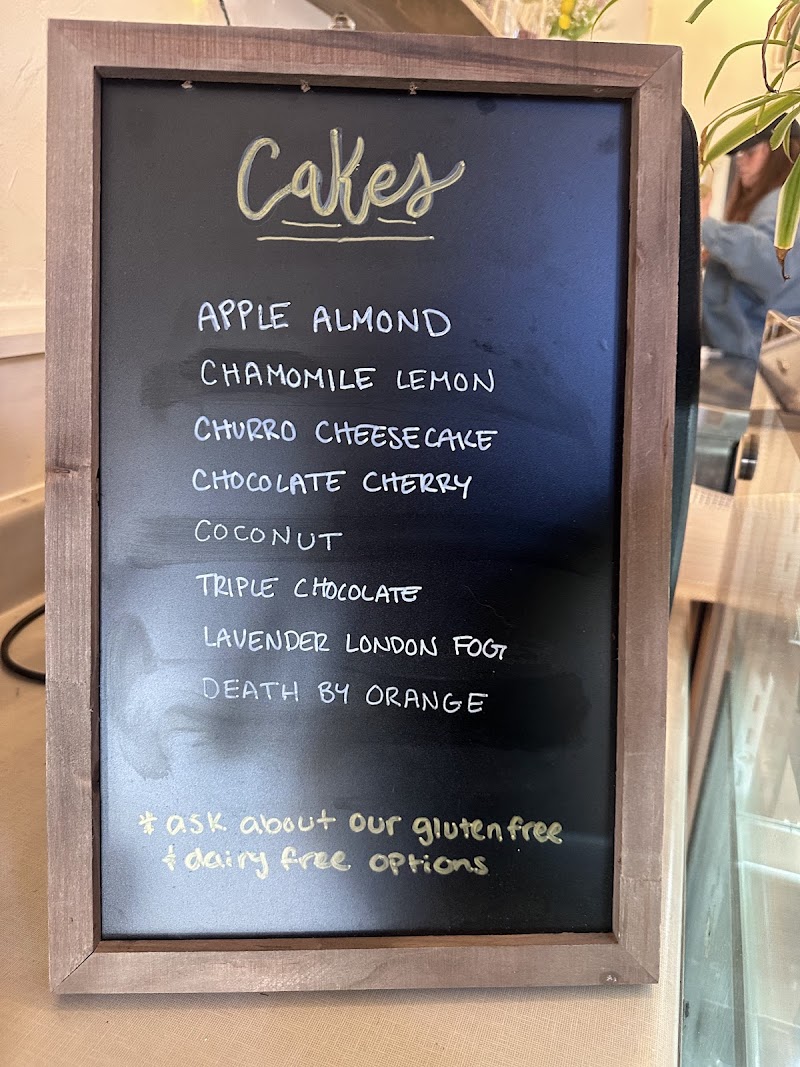 Cakes
APPLE ALMOND
CHAMOMILE LEMON
CHURRO CHEESECAKE
CHOCOLATE CHERRY
COCONUT
TRIPLE CHOCOLATE
LAVENDER LONDON FOG
DEATH BY ORANGE
* ask about our gluten free
& dairy free options